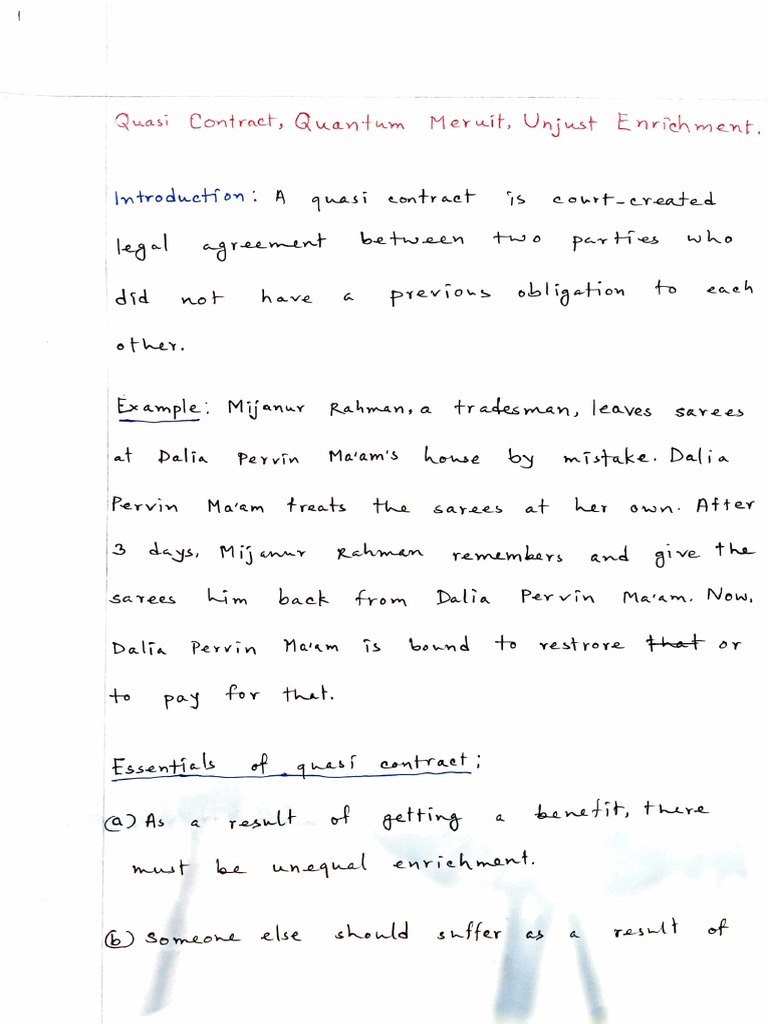 1
Quasi Contract, Quantum Meruit, Unjust Enrichment.
Introduction: A quasi contract is court-created
legal agreement between two parties who
did not have a previous obligation to each
other.
Example: Mijanur Rahman, a tradesman, leaves sarees
at Dalia Pervin Ma'am's house by mistake. Dalia
Pervin Ma'am treats the sarees at her own. After
3 days, Mijanur Rahman remembers and give the
sarees him back from Dalia Pervin Ma'am. Now,
Dalia Pervin Ma'am is bound to restrore that or
to pay for that.
Essentials of quasi contract;
(a) As a result of getting a benefit, there
must be unequal enrichment.
(b) Someone else should suffer as a result of